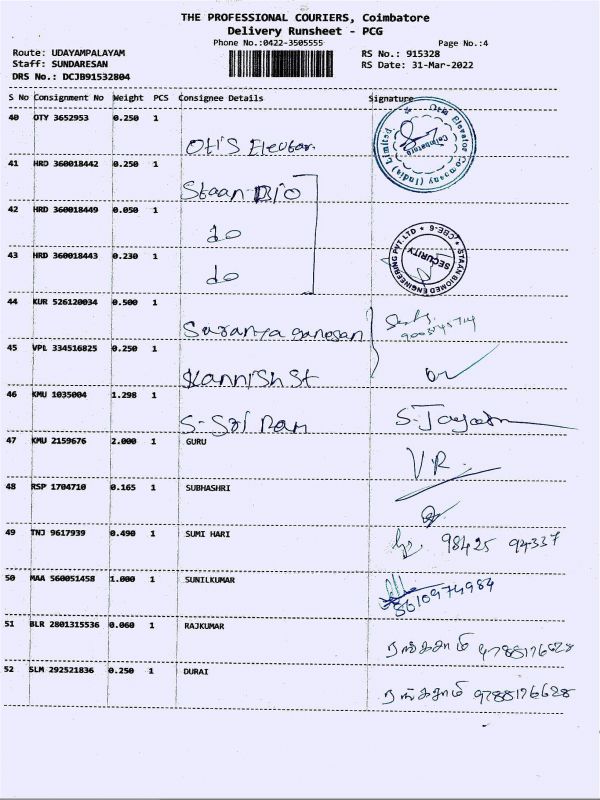 THE PROFESSIONAL COURIERS, Coimbatore
Delivery Runsheet - PCG
Phone No.:0422-3505555
Page No.:4
Route: UDAYAMPALAYAM
RS No.: 915328
Staff: SUNDARESAN
RS Date: 31-Mar-2022
DRS No.: DCJB91532804
S No Consignment No Weight PCS Consignee Details Signature
40 OTY 3652953 0.250 1 Otis Elevtor
Otis Elevator Company (India) Limited
Coimbatore
41 HRD 360018442 0.250 1 Staan Bio
42 HRD 360018449 0.050 1 do
STAAN BIOMED ENGINEERING PVT.LTD * CBE-6 *
SECURITY
43 HRD 360018443 0.230 1 do
44 KUR 526120034 0.500 1 Saranya ganesan
45 VPL 334516825 0.250 1 Kannish St
46 KMU 1035004 1.298 1 S-Sri Ram S.
47 KMU 2159676 2.000 1 GURU V R.
48 RSP 1704710 0.165 1 SUBHASHRI
49 TNJ 9617939 0.490 1 SUMI HARI 98425 94337
50 MAA 560051458 1.000 1 SUNILKUMAR 8610974984
51 BLR 2801315536 0.060 1 RAJKUMAR 9788176628
52 SLM 292521836 0.250 1 DURAI 9788176628